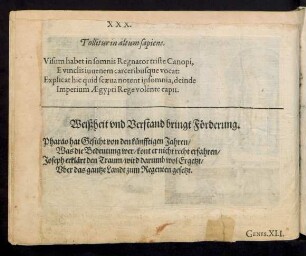 XXX.
Tollitur in altum sapiens.
Visum habet in somnis Regnator triste Canopi,
E vinclis iuvenem carceribusque vocat:
Explicat hic quid scæua notent insomnia, deinde
Imperium Ægypti Rege volente capit.
Weißheit vnd Verstand bringt Förderung.
Pharao hat Gesicht von den künfftigen Jahren/
Was die Bedeutung wer/ kont er nicht recht erfahren/
Joseph erklärt den Traum/ wird darumb wol Ergetzt/
Vber das gantze Landt zum Regenten gesetzt.
Genes. XLI.